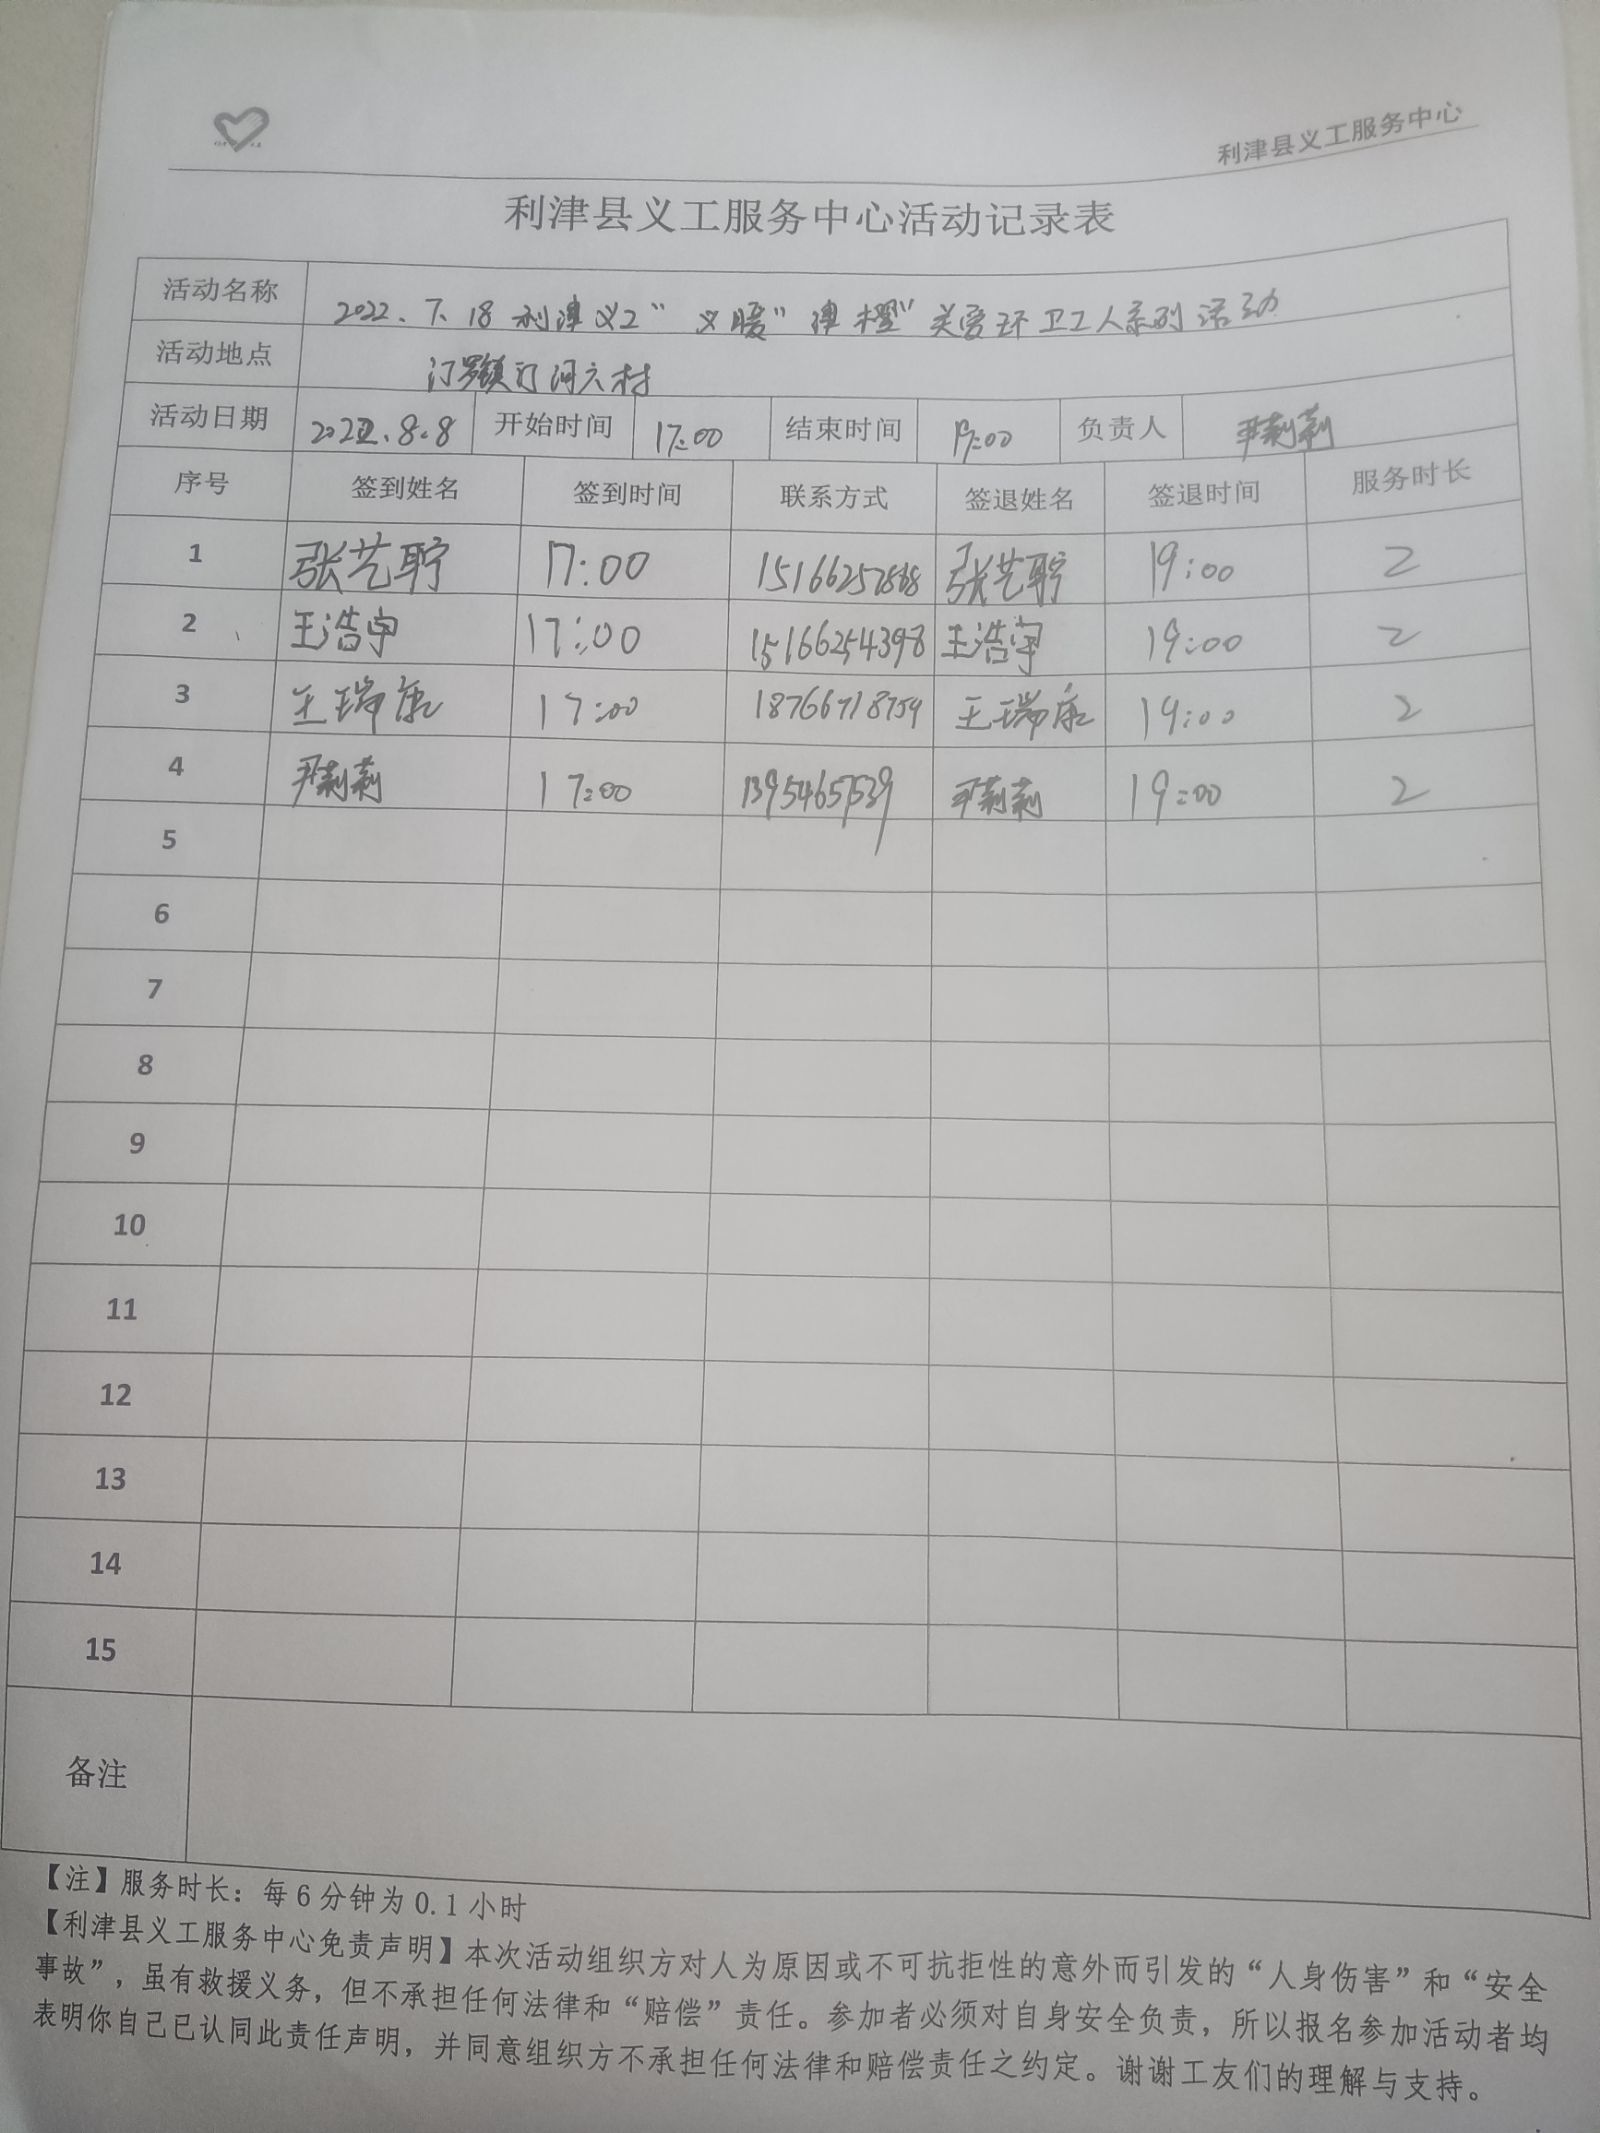 利津县义工服务中心
利津县义工服务中心活动记录表
活动名称 2022.7.18利津义工“义暖”津橙”关爱环卫工人系列活动
活动地点 汀罗镇汀河六村
活动日期 2022.8.8 开始时间 17:00 结束时间 19:00 负责人 尹莉莉
序号 签到姓名 签到时间 联系方式 签退姓名 签退时间 服务时长
1 张艺聍 17:00 张艺聍 19:00 2
2 王浩宇 17:00 15166254398 王浩宇 19:00 2
3 王瑞康 17:00 18766718759 王瑞康 19:00 2
4 尹莉莉 17:00 13954657539 尹莉莉 19:00 2
5
6
7
8
9
10
11
12
13
14
15
备注
【注】服务时长：每6分钟为0.1小时
【利津县义工服务中心免责声明】本次活动组织方对人为原因或不可抗拒性的意外而引发的“人身伤害”和“安全
事故”，虽有救援义务，但不承担任何法律和“赔偿”责任。参加者必须对自身安全负责，所以报名参加活动者均
表明你自己已认同此责任声明，并同意组织方不承担任何法律和赔偿责任之约定。谢谢工友们的理解与支持。